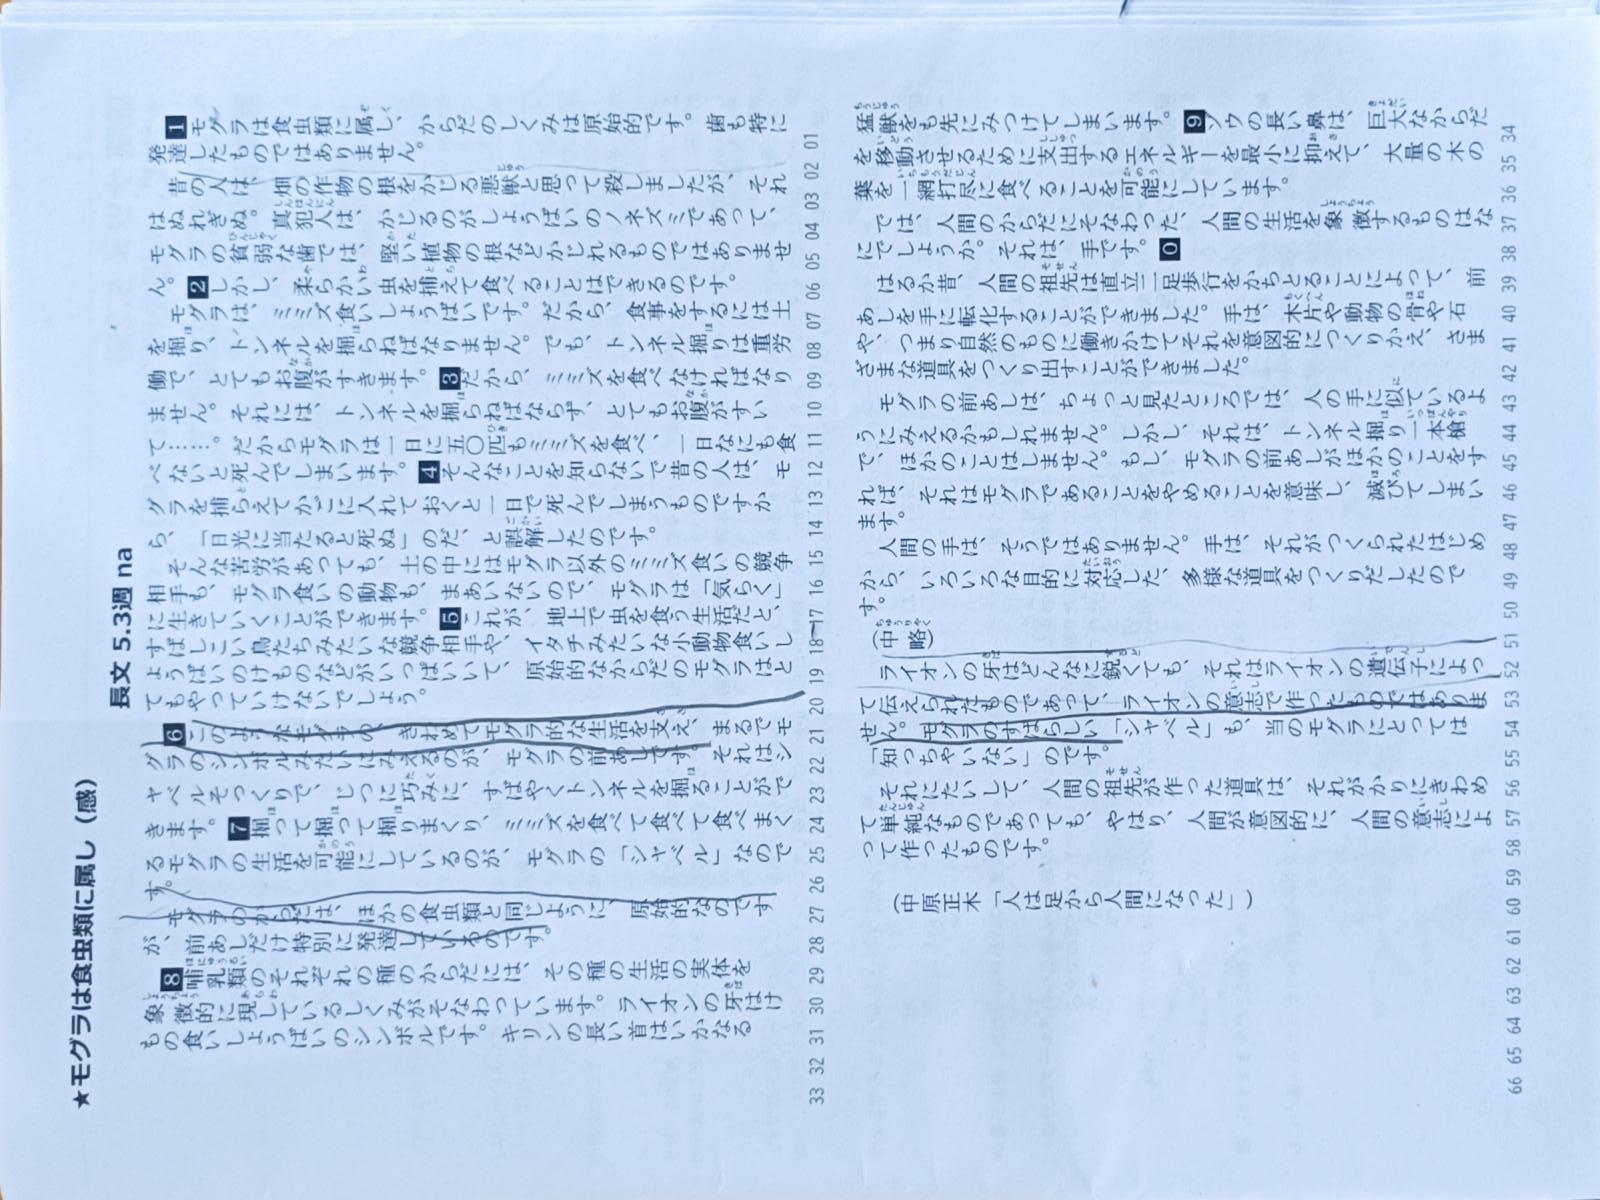 ★モグラは食虫類に属し（感） 長文 5.3週 na
1モグラは食虫類に属し、からだのしくみは原始的です。歯も特に
発達したものではありません。
昔の人は、畑の作物の根をかじる悪獣と思って殺しましたが、それ
はぬれぎぬ。真犯人は、かじるのがしょうばいのノネズミであって、
モグラの貧弱な歯では、堅い植物の根などかじれるものではありませ
ん。2しかし、柔らかい虫を捕えて食べることはできるのです。
モグラは、ミミズ食いしょうばいです。だから、食事をするには土
を掘り、トンネルを掘らねばなりません。でも、トンネル掘りは重労
働で、とてもお腹がすきます。3だから、ミミズを食べなければなり
ません。それには、トンネルを掘らねばならず、とてもお腹がすい
て……。だからモグラは一日に五〇匹もミミズを食べ、一日なにも食
べないと死んでしまいます。4そんなことを知らないで昔の人は、モ
グラを捕らえてかごに入れておくと一日で死んでしまうものですか
ら、「日光に当たると死ぬ」のだ、と誤解したのです。
そんな苦労があっても、土の中にはモグラ以外のミミズ食いの競争
相手も、モグラ食いの動物も、まあいないので、モグラは「気らく」
に生きていくことができます。5これが、地上で虫を食う生活だと、
すばしこい鳥たちみたいな競争相手や、イタチみたいな小動物食いし
ょうばいのけものなどがいっぱいいて、原始的なからだのモグラはと
てもやっていけないでしょう。
6このようなモグラの、きわめてモグラ的な生活を支え、まるでモ
グラのシンボルみたいにみえるのが、モグラの前あしです。それはシ
ャベルそっくりで、じつに巧みに、すばやくトンネルを掘ることがで
きます。7掘って掘って掘りまくり、ミミズを食べて食べて食べまく
るモグラの生活を可能にしているのが、モグラの「シャベル」なので
す。
モグラのからだは、ほかの食虫類と同じように、原始的なのです
が、前あしだけ特別に発達しているのです。
8哺乳類のそれぞれの種のからだには、その種の生活の実体を
象徴的に現しているしくみがそなわっています。ライオンの牙はけ
もの食いしょうばいのシンボルです。キリンの長い首はいかなる
33 32 31 30 29 28 27 26 25 24 23 22 21 20 19 18 17 16 15 14 13 12 11 10 09 08 07 06 05 04 03 02 01
猛獣をも先にみつけてしまいます。9ゾウの長い鼻は、巨大なからだ
を移動させるために支出するエネルギーを最小に抑えて、大量の木の
葉を一網打尽に食べることを可能にしています。
では、人間のからだにそなわった、人間の生活を象徴するものはな
にでしょうか。それは、手です。0
はるか昔、人間の祖先は直立二足歩行をかちとることによって、前
あしを手に転化することができました。手は、木片や動物の骨や石
や、つまり自然のものに働きかけてそれを意図的につくりかえ、さま
ざまな道具をつくり出すことができました。
モグラの前あしは、ちょっと見たところでは、人の手に似ているよ
うにみえるかもしれません。しかし、それは、トンネル掘り一本槍
で、ほかのことはしません。もし、モグラの前あしがほかのことをす
れば、それはモグラであることをやめることを意味し、滅びてしまい
ます。
人間の手は、そうではありません。手は、それがつくられたはじめ
から、いろいろな目的に対応した、多様な道具をつくりだしたので
す。
（中略）
ライオンの牙はどんなに鋭くても、それはライオンの遺伝子によっ
て伝えられたものであって、ライオンの意志で作ったものではありま
せん。モグラのすばらしい「シャベル」も、当のモグラにとっては
「知っちゃいない」のです。
それにたいして、人間の祖先が作った道具は、それがかりにきわめ
て単純なものであっても、やはり、人間が意図的に、人間の意志によ
って作ったものです。
（中原正木「人は足から人間になった」）
66 65 64 63 62 61 60 59 58 57 56 55 54 53 52 51 50 49 48 47 46 45 44 43 42 41 40 39 38 37 36 35 34